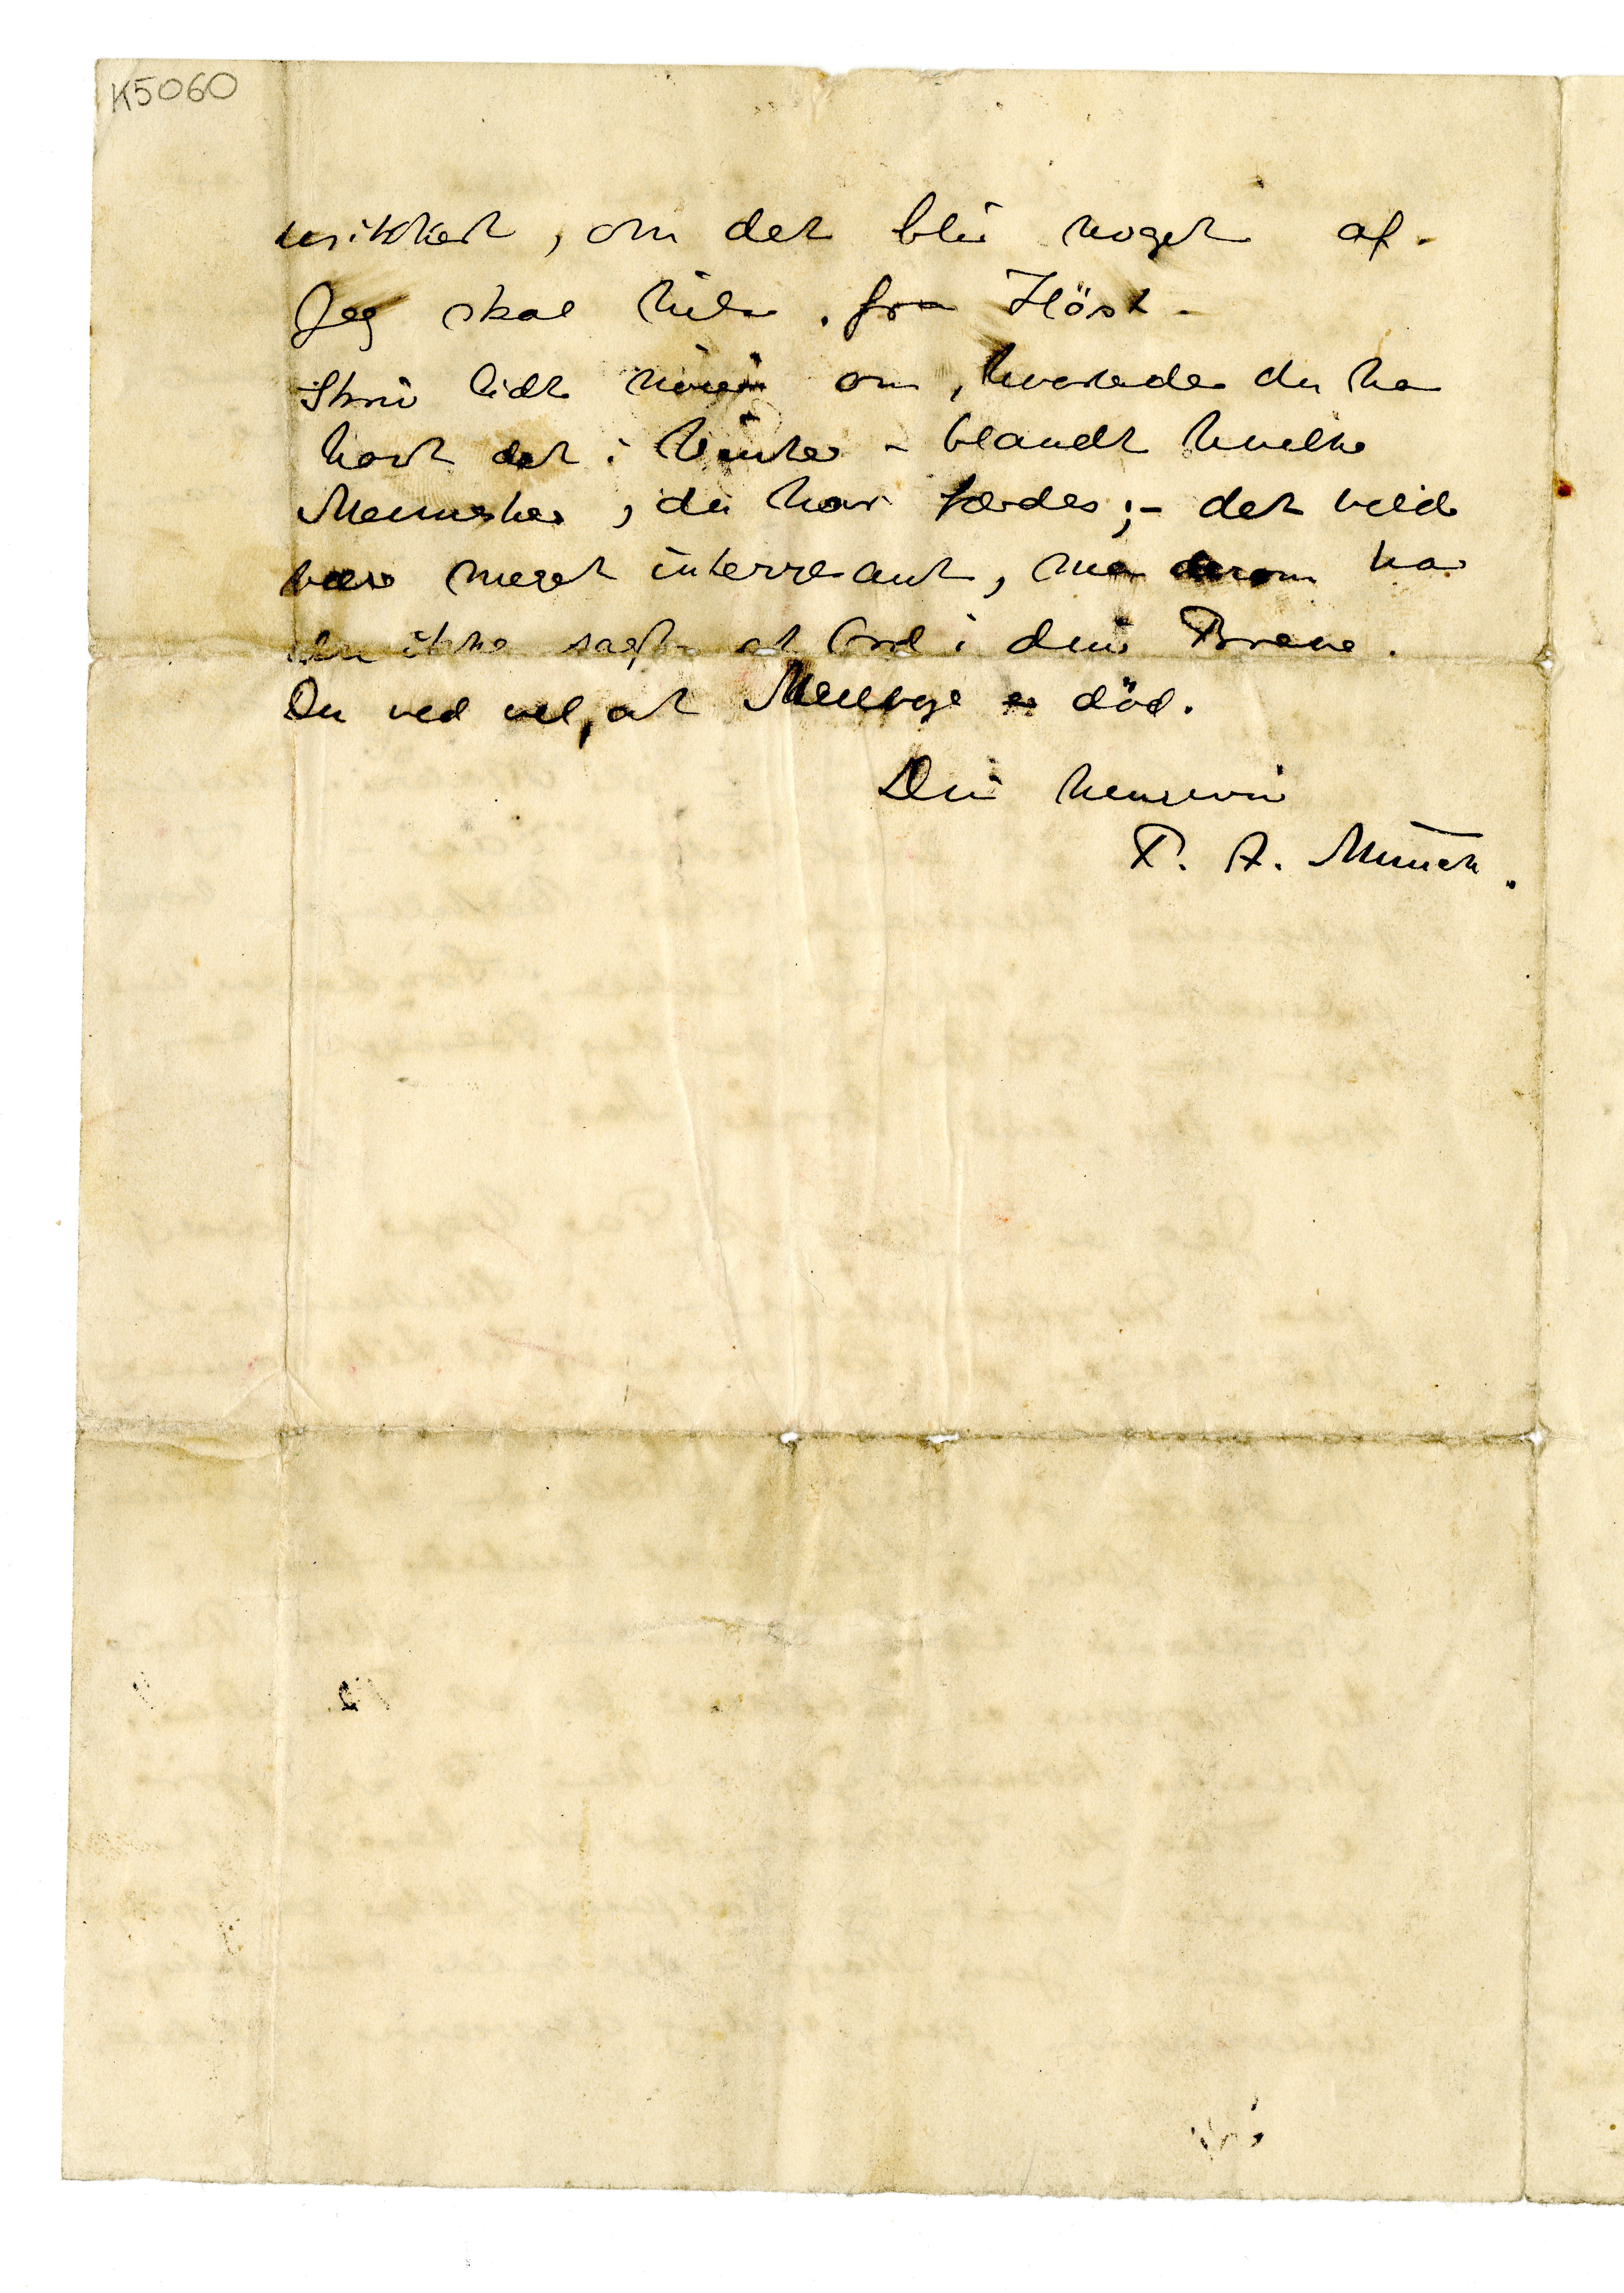 K5060
usikkert, om det blir noget af.
Jeg skal hilse fra Höst.
Skriv lidt om, hvorledes du har
havt det i Vinter - blandt hvilke
Mennesker, du har færdes; - det vilde
være meget interresant, men derom har
du ikke sagt et Ord i dine Breve.
Du ved vel, at er död.
Din hengivne
P. A. Munch.